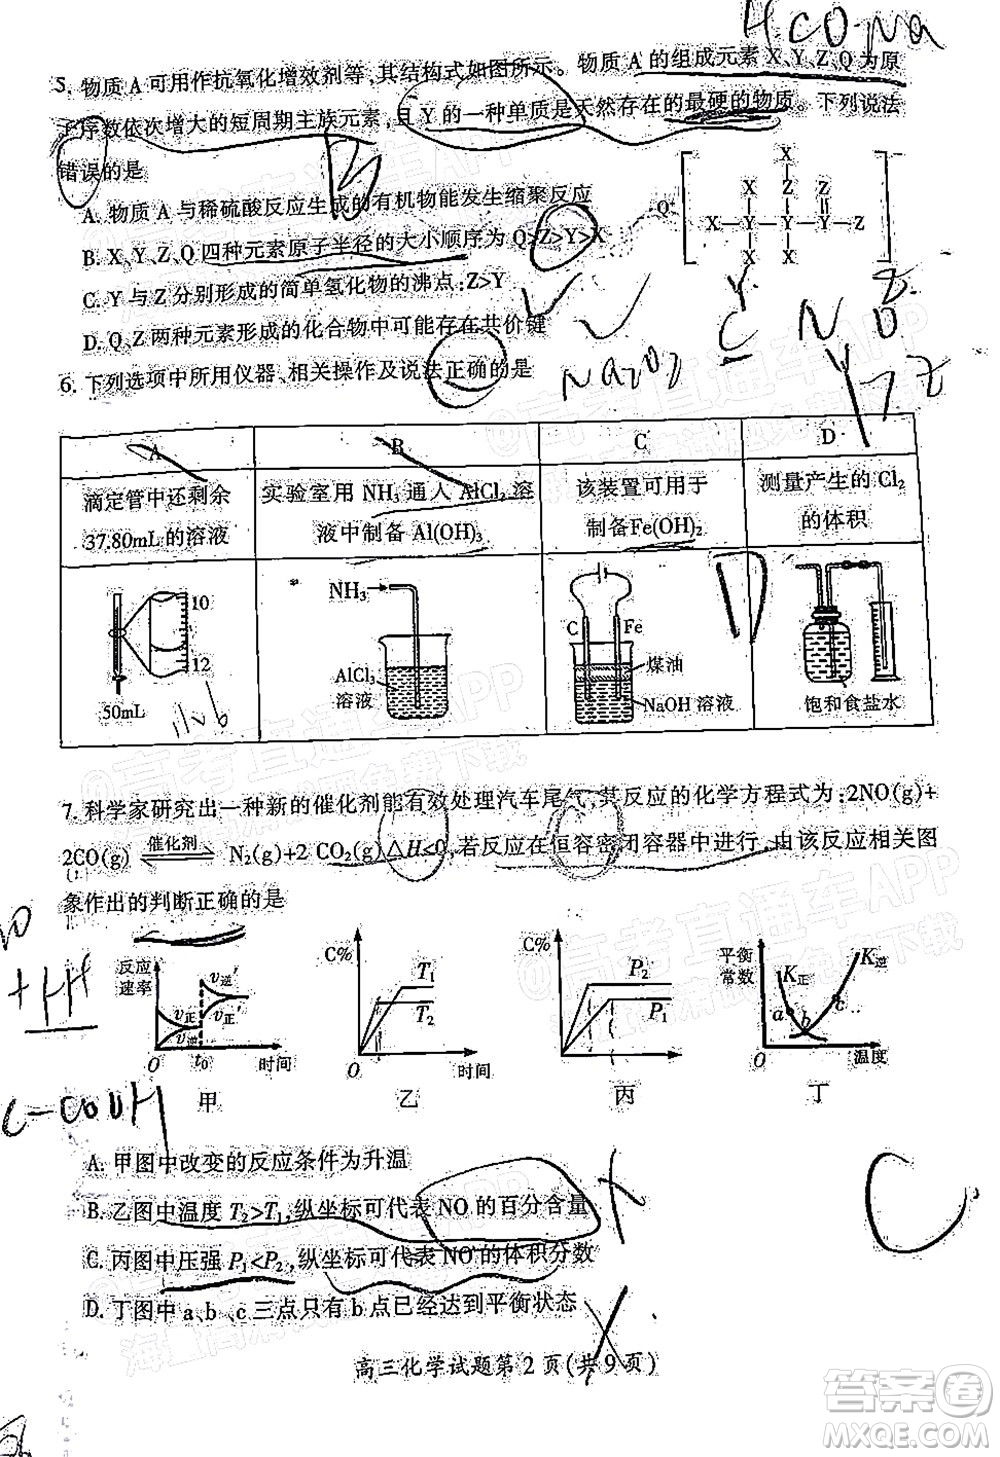 HCO Na
5. 物质 A 可用作抗氧化增效剂等，其结构式如图所示。物质 A 的组成元素 X、Y、Z、Q 为原
子序数依次增大的短周期主族元素，且 Y 的一种单质是天然存在的最硬的物质。下列说法
错误的是
A. 物质 A 与稀硫酸反应生成的有机物能发生缩聚反应
B. X、Y、Z、Q 四种元素原子半径的大小顺序为 Q>Z>Y>X
C. Y 与 Z 分别形成的简单氢化物的沸点:Z>Y
D. Q、Z 两种元素形成的化合物中可能存在共价键
X
X Z Z
Q⁺ X—Y—Y—Y—Z
X X
Y
C N O
Na2O2
6. 下列选项中所用仪器、相关操作及说法正确的是
A B C D
滴定管中还剩余
37.80mL 的溶液
实验室用 NH₃ 通入 AlCl₃ 溶
液中制备 Al(OH)₃
该装置可用于
制备Fe(OH)₂
测量产生的 Cl₂
的体积
10
12
50mL
NH₃
AlCl₃
溶液
C Fe
煤油
NaOH 溶液
饱和食盐水
7. 科学家研究出一种新的催化剂能有效处理汽车尾气，其反应的化学方程式为:2NO(g)+
2CO(g) ⇌(催化剂) N₂(g)+2 CO₂(g) △H<0,若反应在恒容密闭容器中进行，由该反应相关图
象作出的判断正确的是
反应
速率
v正
v逆
v逆′
v正′
O t₀ 时间
甲
C%
T₁
T₂
O 时间
乙
C%
P₂
P₁
O 时间
丙
平衡
常数
K正
K逆
a b c
O 温度
丁
C-COOH
A. 甲图中改变的反应条件为升温
B. 乙图中温度 T₂>T₁,纵坐标可代表 NO 的百分含量
C. 丙图中压强 P₁<P₂,纵坐标可代表 NO 的体积分数
D. 丁图中 a、b、c 三点只有 b 点已经达到平衡状态
C
高三化学试题第 2 页(共 9 页)
答案圈
MXQE.COM